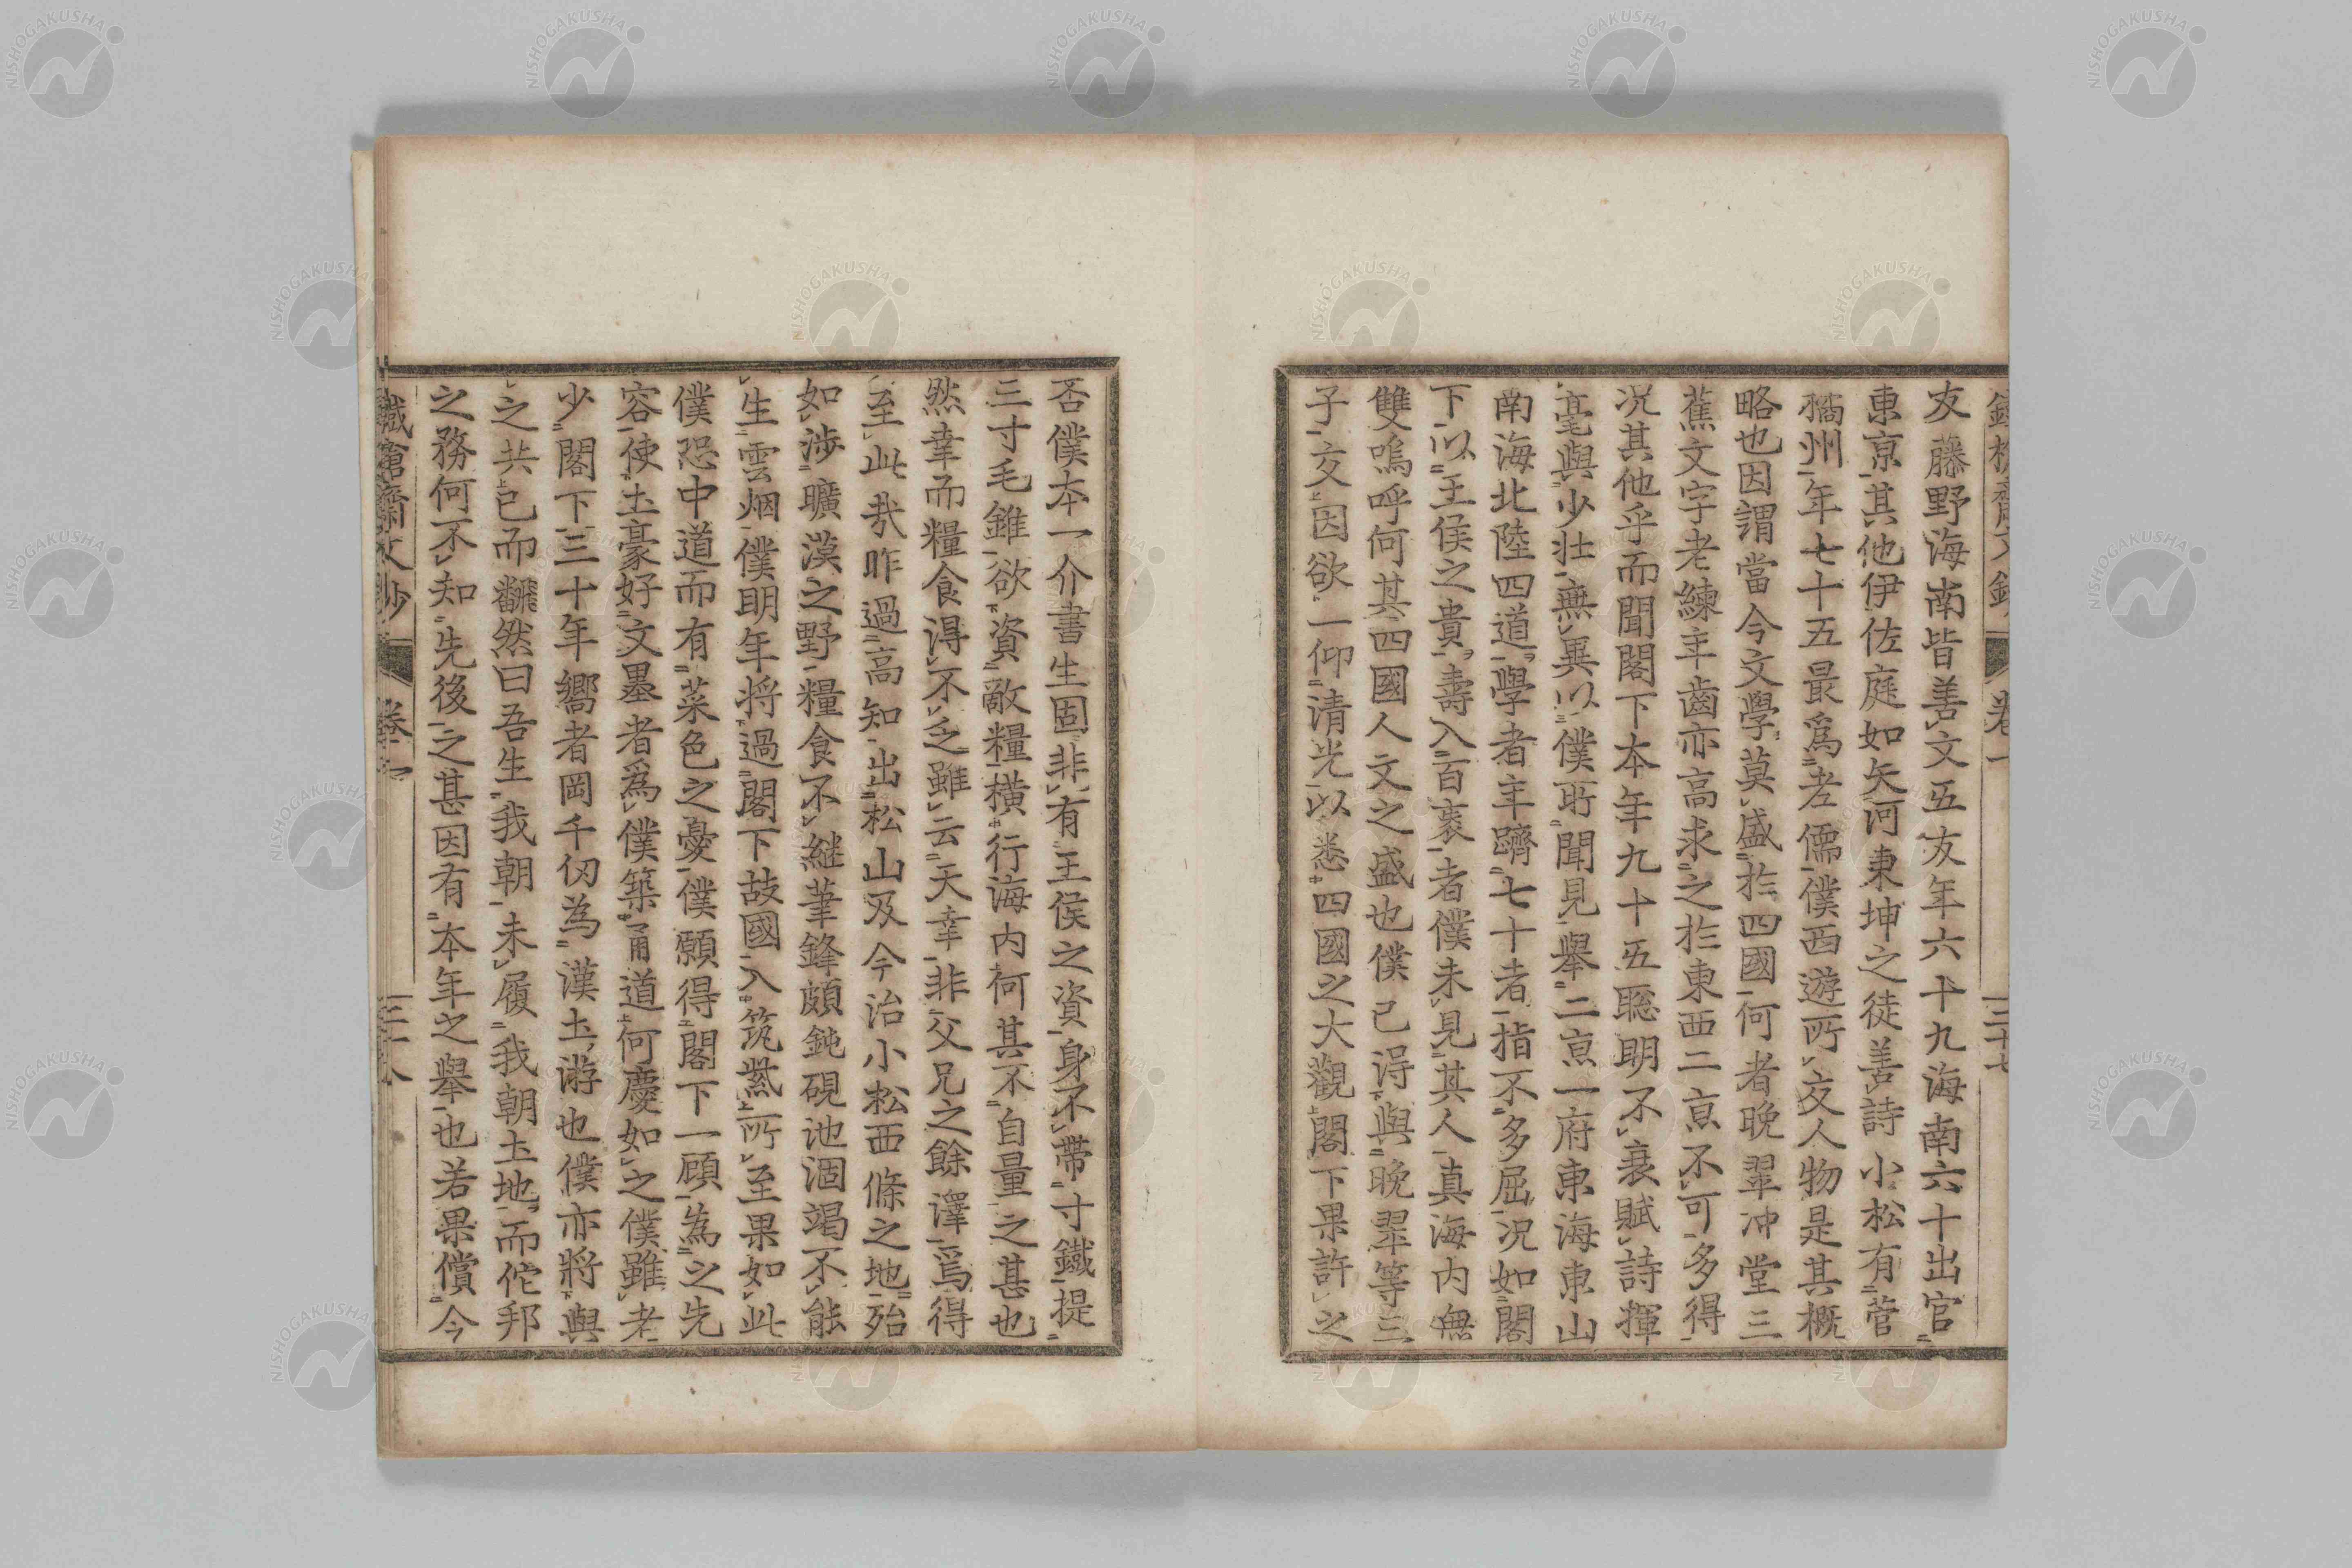 友藤野海南皆善文五友年六十九海南六十出官
東京其他伊佐庭如矢河東坤之徒善詩小松有菅
橘州年七十五最爲老儒僕西遊所交人物是其概
略也因謂當今文學莫盛於四國何者晩翠冲堂三
蕉文字老練年齒亦高求之於東西二京不可多得
况其他乎而聞閣下本年九十五聡明不衰賦詩揮
毫與少壯無異以僕所聞見擧二京一府東海東山
南海北陸四道學者年躋七十者指不多屈况如閣
下以王侯之貴壽入百袠者僕未見其人真海内無
雙嗚呼何其四國人文之盛也僕已得與晩翠等三
子交因欲一仰清光以悉四國之大觀閣下果許之
否僕本一介書生固非有王侯之資身不帶寸鐵提
三寸毛錐欲資敵糧横行海内何其不自量之甚也
然幸而糧食得不乏雖云天幸非父兄之餘澤焉得
至此哉昨過高知出松山及今治小松西條之地殆
如渉曠漠之野糧食不継筆鋒頗鈍硯池涸竭不能
生雲烟僕明年将過閣下故國入筑紫所至果如此
僕恐中道而有菜色之憂僕願得閣下一顧為之先
容使土豪好文墨者爲僕築甬道何慶如之僕雖老
少閣下三十年嚮者岡千仭為漢土游也僕亦將與
之共已而飜然曰吾生我朝未履我朝土地而佗邦
之務何不知先後之甚因有本年之擧也若果償今
鐵槍齋文鈔 卷一 三十八